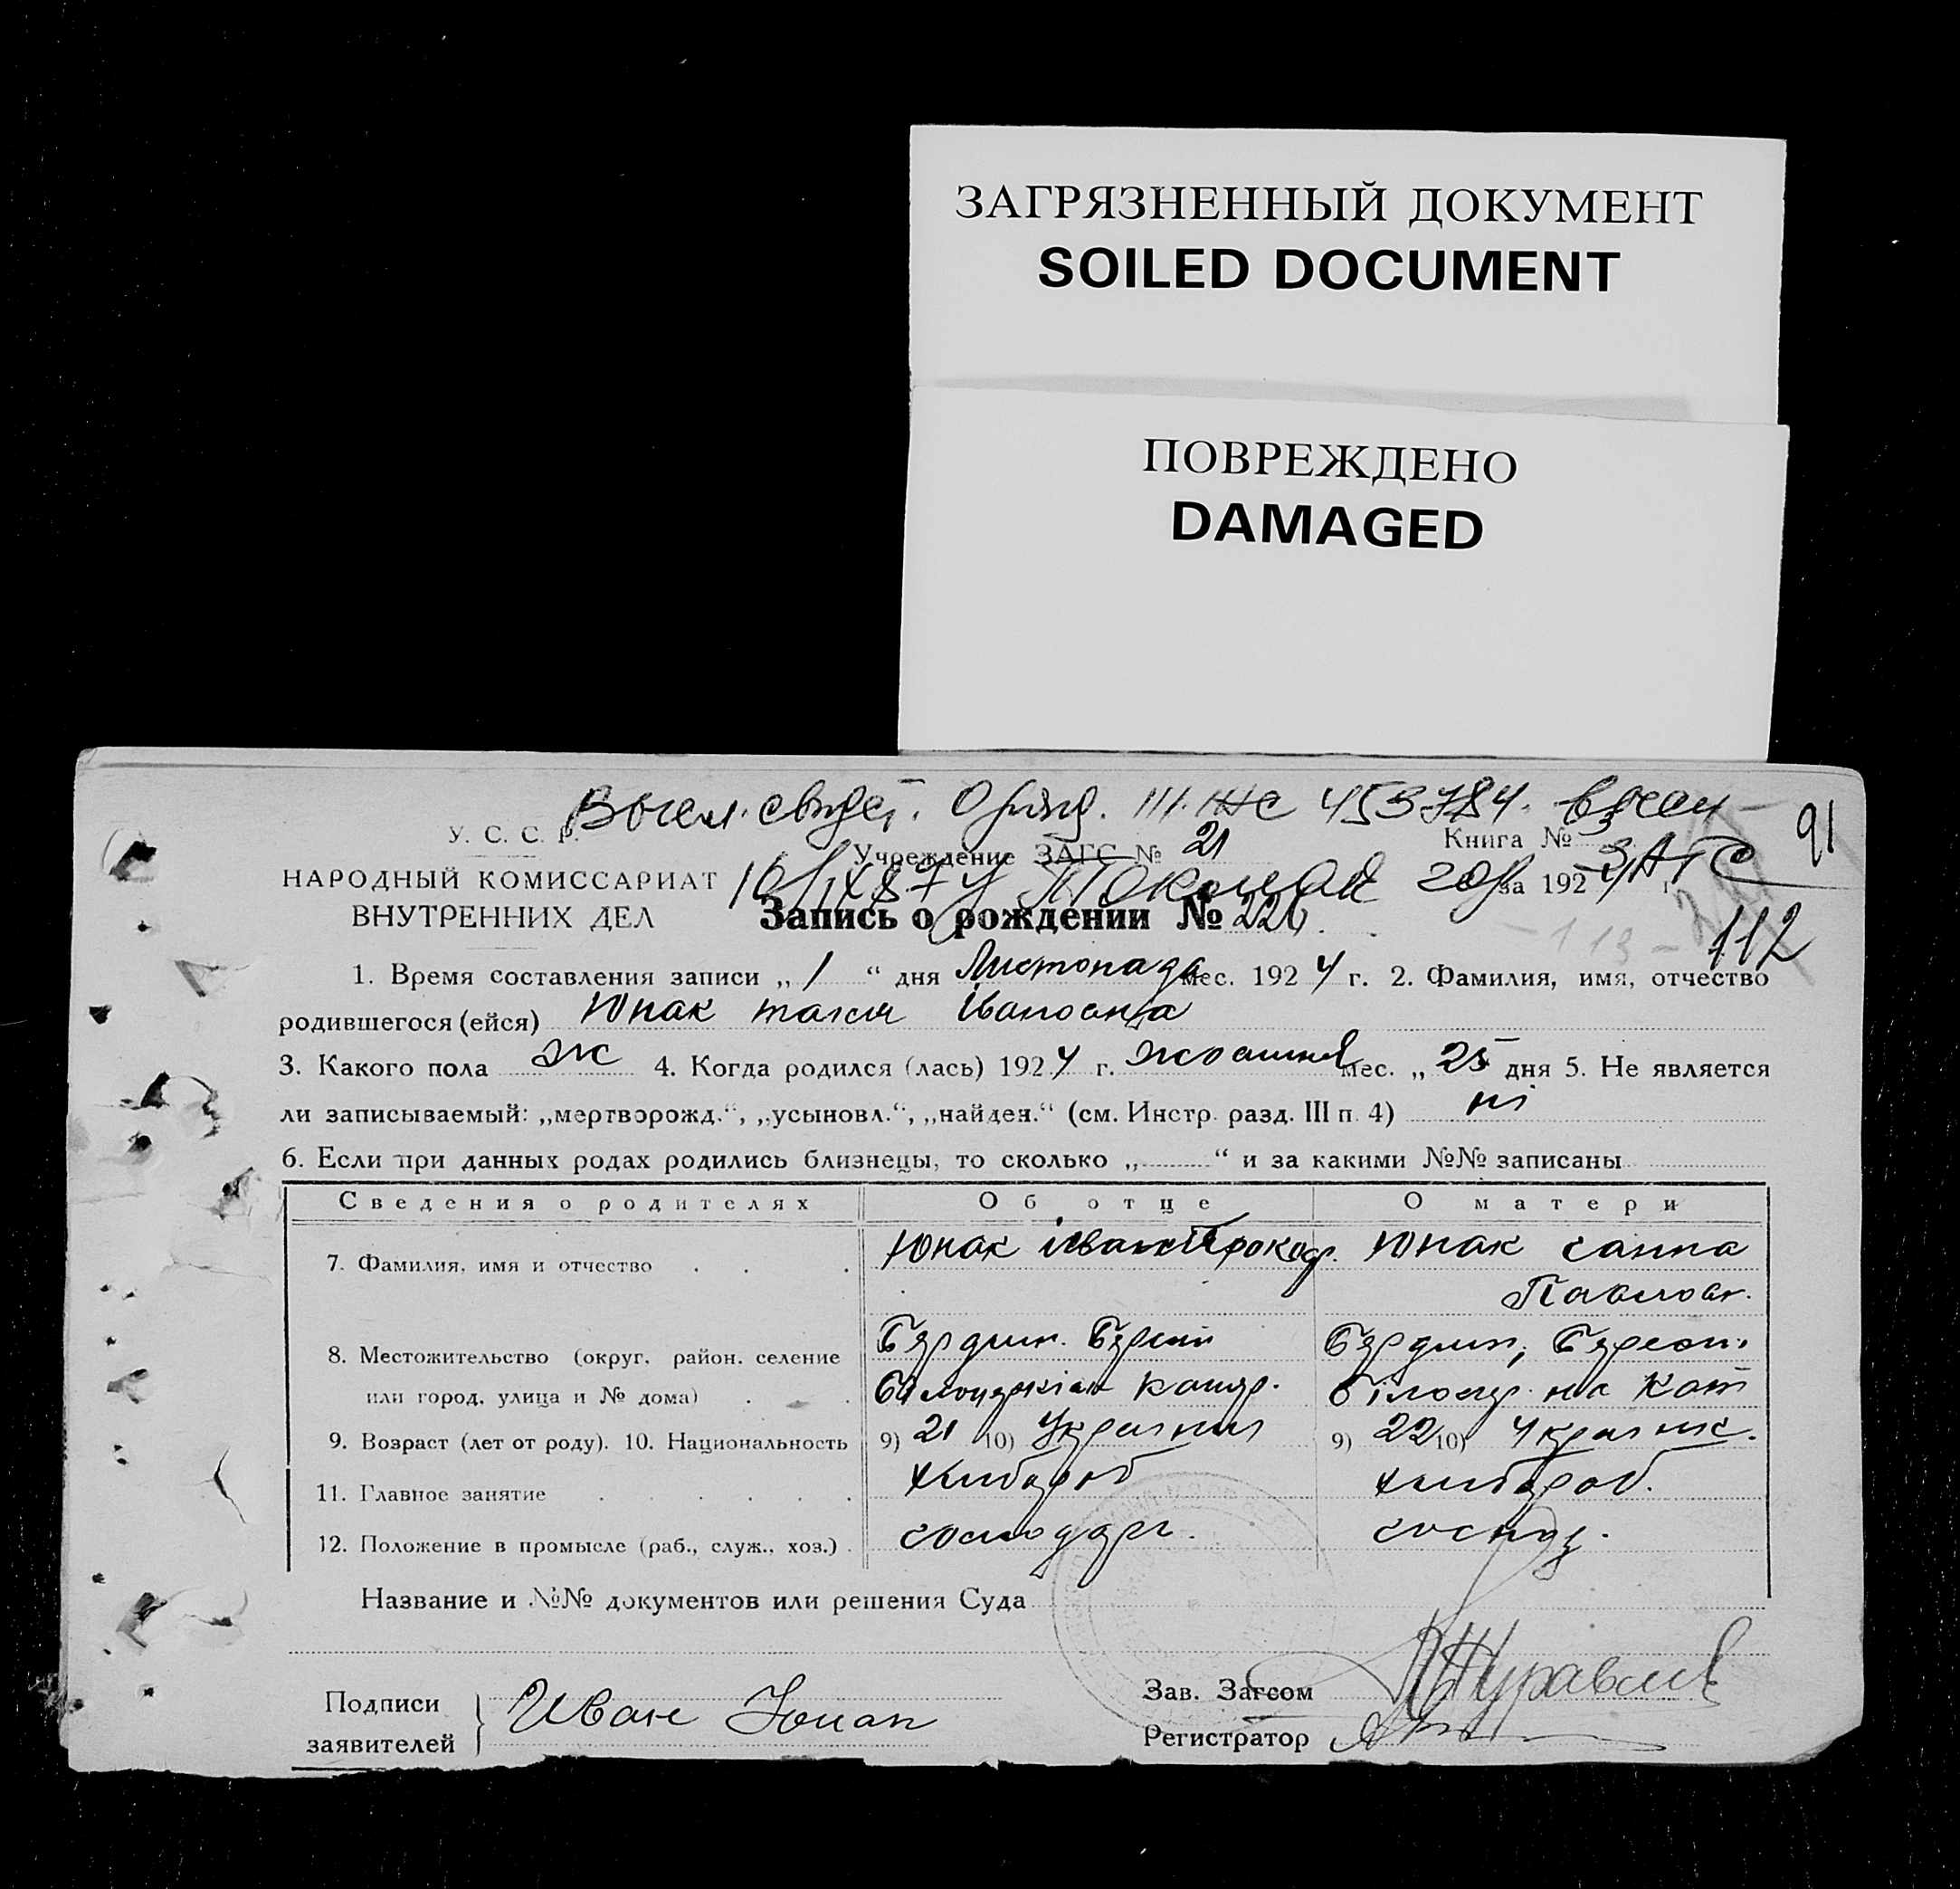 ЗАГРЯЗНЕННЫЙ ДОКУМЕНТ
SOILED DOCUMENT
ПОВРЕЖДЕНО
DAMAGED
свидет. 453784.
91
У. С. С. Р.
Учреждение ЗАГС № 21
Книга №
НАРОДНЫЙ КОМИССАРИАТ
ВНУТРЕННИХ ДЕЛ
Токмак ЗАГС
за 192 г.
Запись о рождении № 226.
112
1. Время составления записи „ 1 “ дня Листопада мес. 1924 г. 2. Фамилия, имя, отчество
родившегося (ейся) Юнак Івановна
3. Какого пола ж 4. Когда родился (лась) 1924 г. жовтня мес. „ 25 дня 5. Не является
ли записываемый: „мертворожд.“, „усыновл.“, „найден.“ (см. Инстр. разд. III п. 4) ні
6. Если при данных родах родились близнецы, то сколько „ “ и за какими №№ записаны
Сведения о родителях Об отце О матери
7. Фамилия, имя и отчество Юнак Іван Прокоф. Юнак ганна
Павловн.
8. Местожительство (округ, район, селение
или город, улица и № дома)
9. Возраст (лет от роду). 10. Национальность 9) 21 10) Украинец 9) 22 10) Украинк.
11. Главное занятие хлибороб хлибороб.
12. Положение в промысле (раб., служ., хоз.) господарь. господ.
Название и №№ документов или решения Суда
Подписи
заявителей
Иван Юнак
Зав. Загсом Журавлев
Регистратор